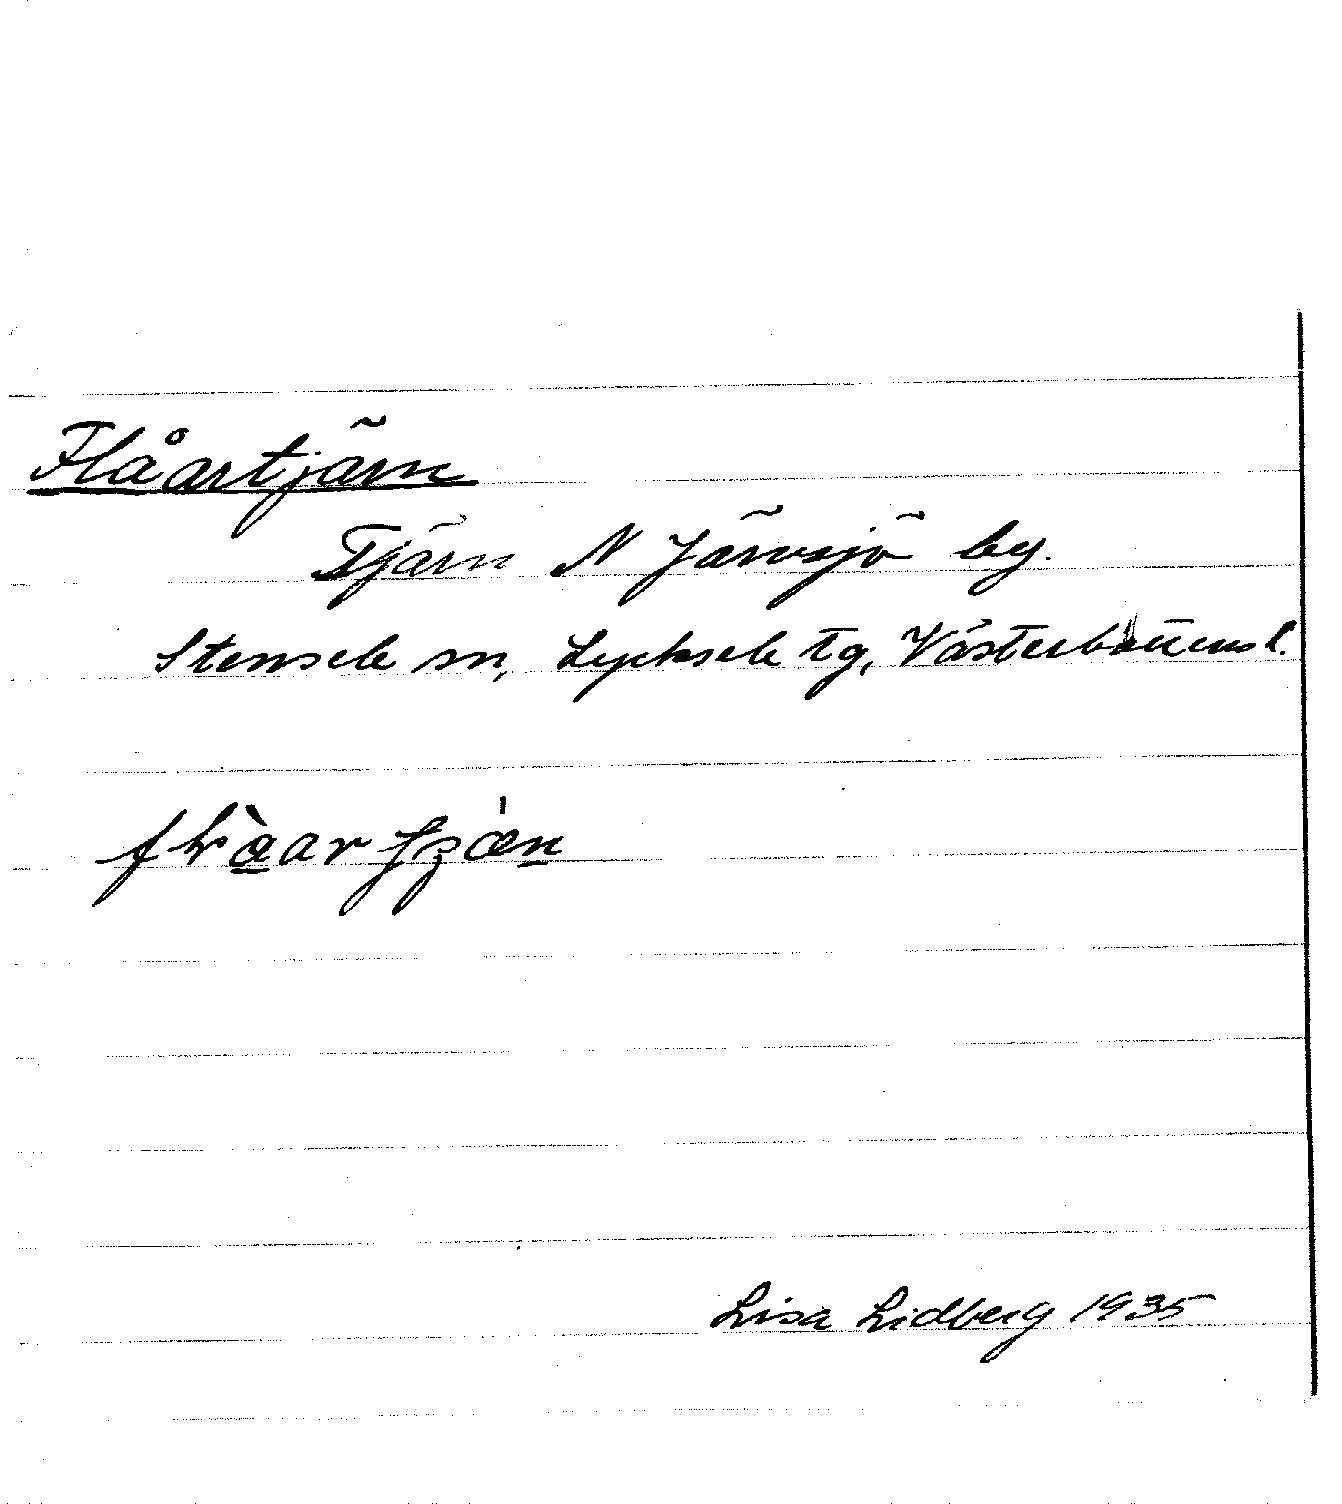 Flåartjärn
Tjärn N Järvsjö by.
Stensele sn, Lycksele tg, Västerbottens l.
Lisa Lidberg 1935